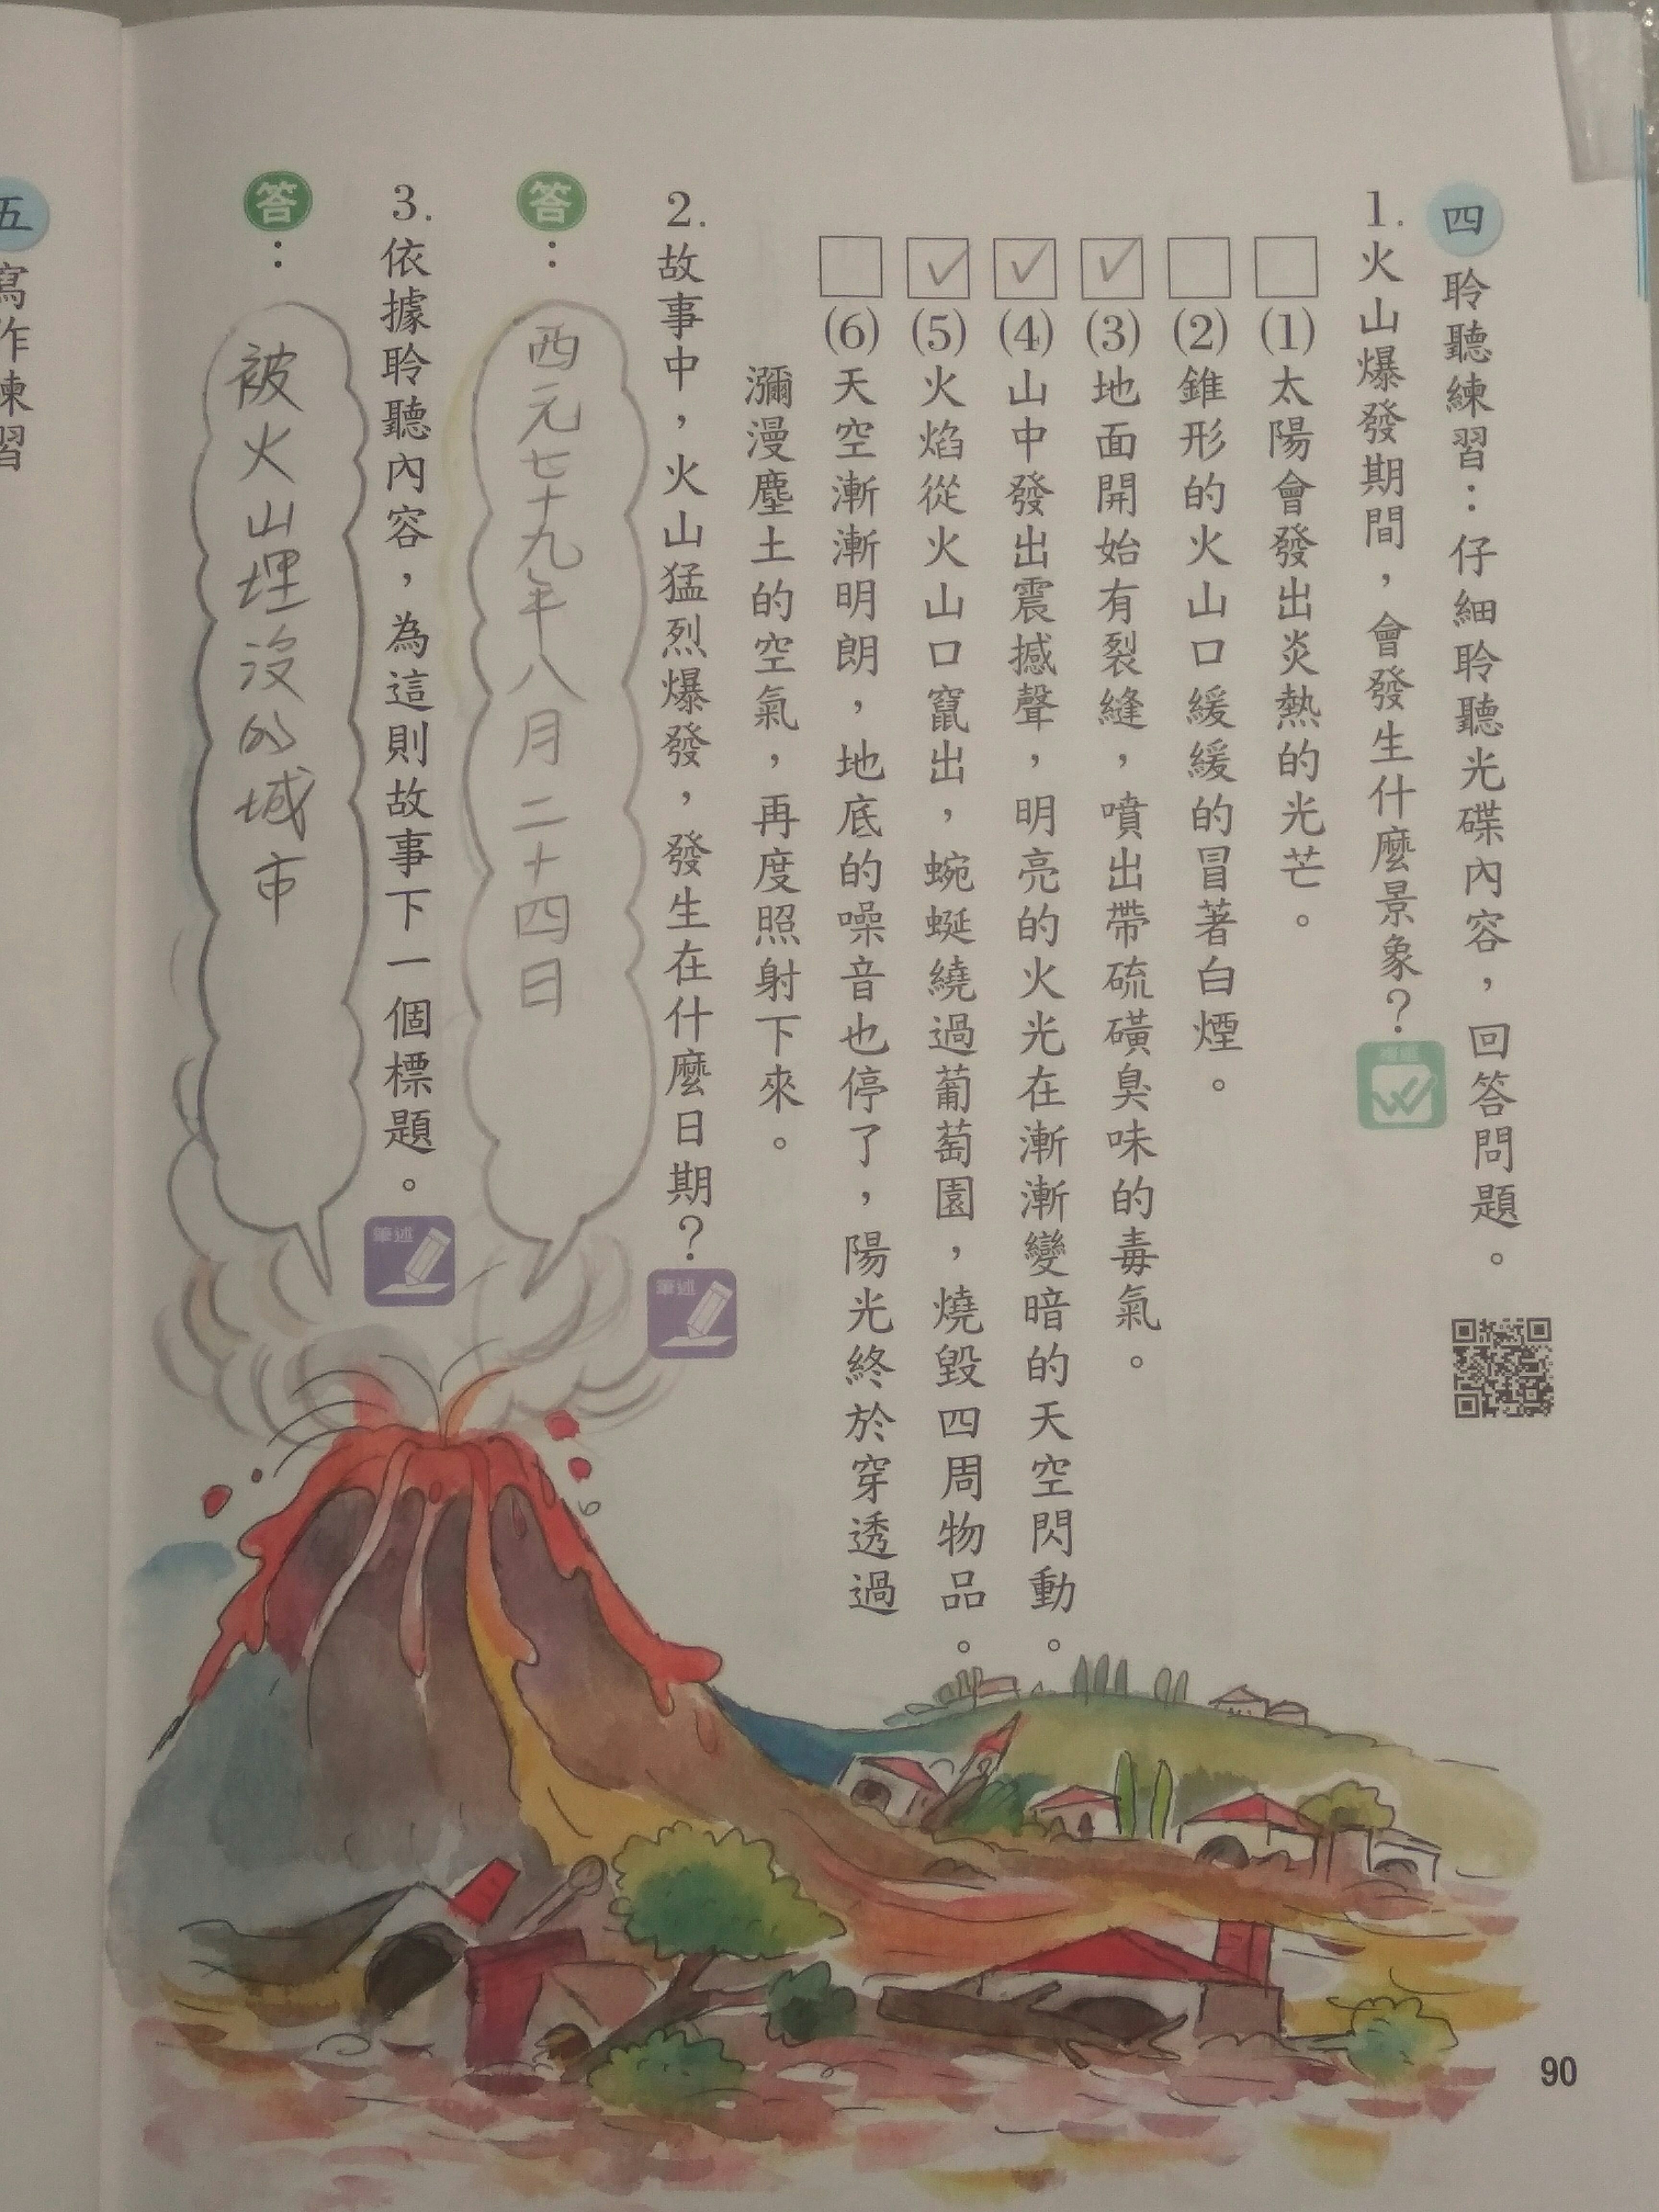 四 聆聽練習：仔細聆聽光碟內容，回答問題。
1.火山爆發期間，會發生什麼景象？
複選
(1)太陽會發出炎熱的光芒。
(2)錐形的火山口緩緩的冒著白煙。
✓(3)地面開始有裂縫，噴出帶硫磺臭味的毒氣。
✓(4)山中發出震撼聲，明亮的火光在漸漸變暗的天空閃動。
✓(5)火焰從火山口竄出，蜿蜒繞過葡萄園，燒毀四周物品。
(6)天空漸漸明朗，地底的噪音也停了，陽光終於穿透過
瀰漫塵土的空氣，再度照射下來。
2.故事中，火山猛烈爆發，發生在什麼日期？
筆述
答：西元七十九年八月二十四日
3.依據聆聽內容，為這則故事下一個標題。
筆述
答：被火山埋沒的城市
五 寫作練習
90